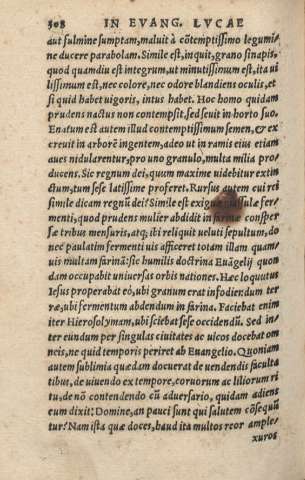 308 IN EVANG. LVCAE
aut fulmine sumptam, maluit à cōtemptissimo legumi-
ne ducere parabolam. Simile est, inquit, grano sinapis,
quod quamdiu est integrum, ut minutissimum est, ita ui
lissimum est, nec colore, nec odore blandiens oculis, et
si quid habet uigoris, intus habet. Hoc homo quidam
prudens nactus non contempsit, sed seuit in horto suo.
Enatum est autem illud contemptissimum semen, & ex
creuit in arborē ingentem, adeo ut in ramis eius etiam
aues nidularentur, pro uno granulo, multa milia pro-
ducens. Sic regnum dei, quum maxime uidebitur extin
ctum, tum sese latissime proferet. Rursus autem cui rei
simile dicam regnū dei? Simile est exiguæ fer-
menti, quod prudens mulier abdidit in farinæ consper
sæ tribus mensuris, atq; ibi reliquit ueluti sepultum, do
nec paulatim fermenti uis afficeret totam illam quam-
uis multam farinā: sic humilis doctrina Euāgelij quon
dam occupabit uniuersas orbis nationes. Hæc loquutus
Iesus properabat eò, ubi granum erat infodiendum ter
ræ, ubi fermentum abdendum in farina. Faciebat enim
iter Hierosolymam, ubi sciebat sese occidendū. Sed in-
ter eundum per singulas ciuitates ac uicos docebat om
neis, ne quid temporis periret ab Euangelio. Quoniam
autem sublimia quædam docuerat de uendendis faculta
tibus, de uiuendo ex tempore, coruorum ac liliorum ri
tu, de nō contendendo cū aduersario, quidam adiens
eum dixit: Domine, an pauci sunt qui salutem cōsequū
tur? Nam ista quæ doces, haud ita multos reor ample-
xuros